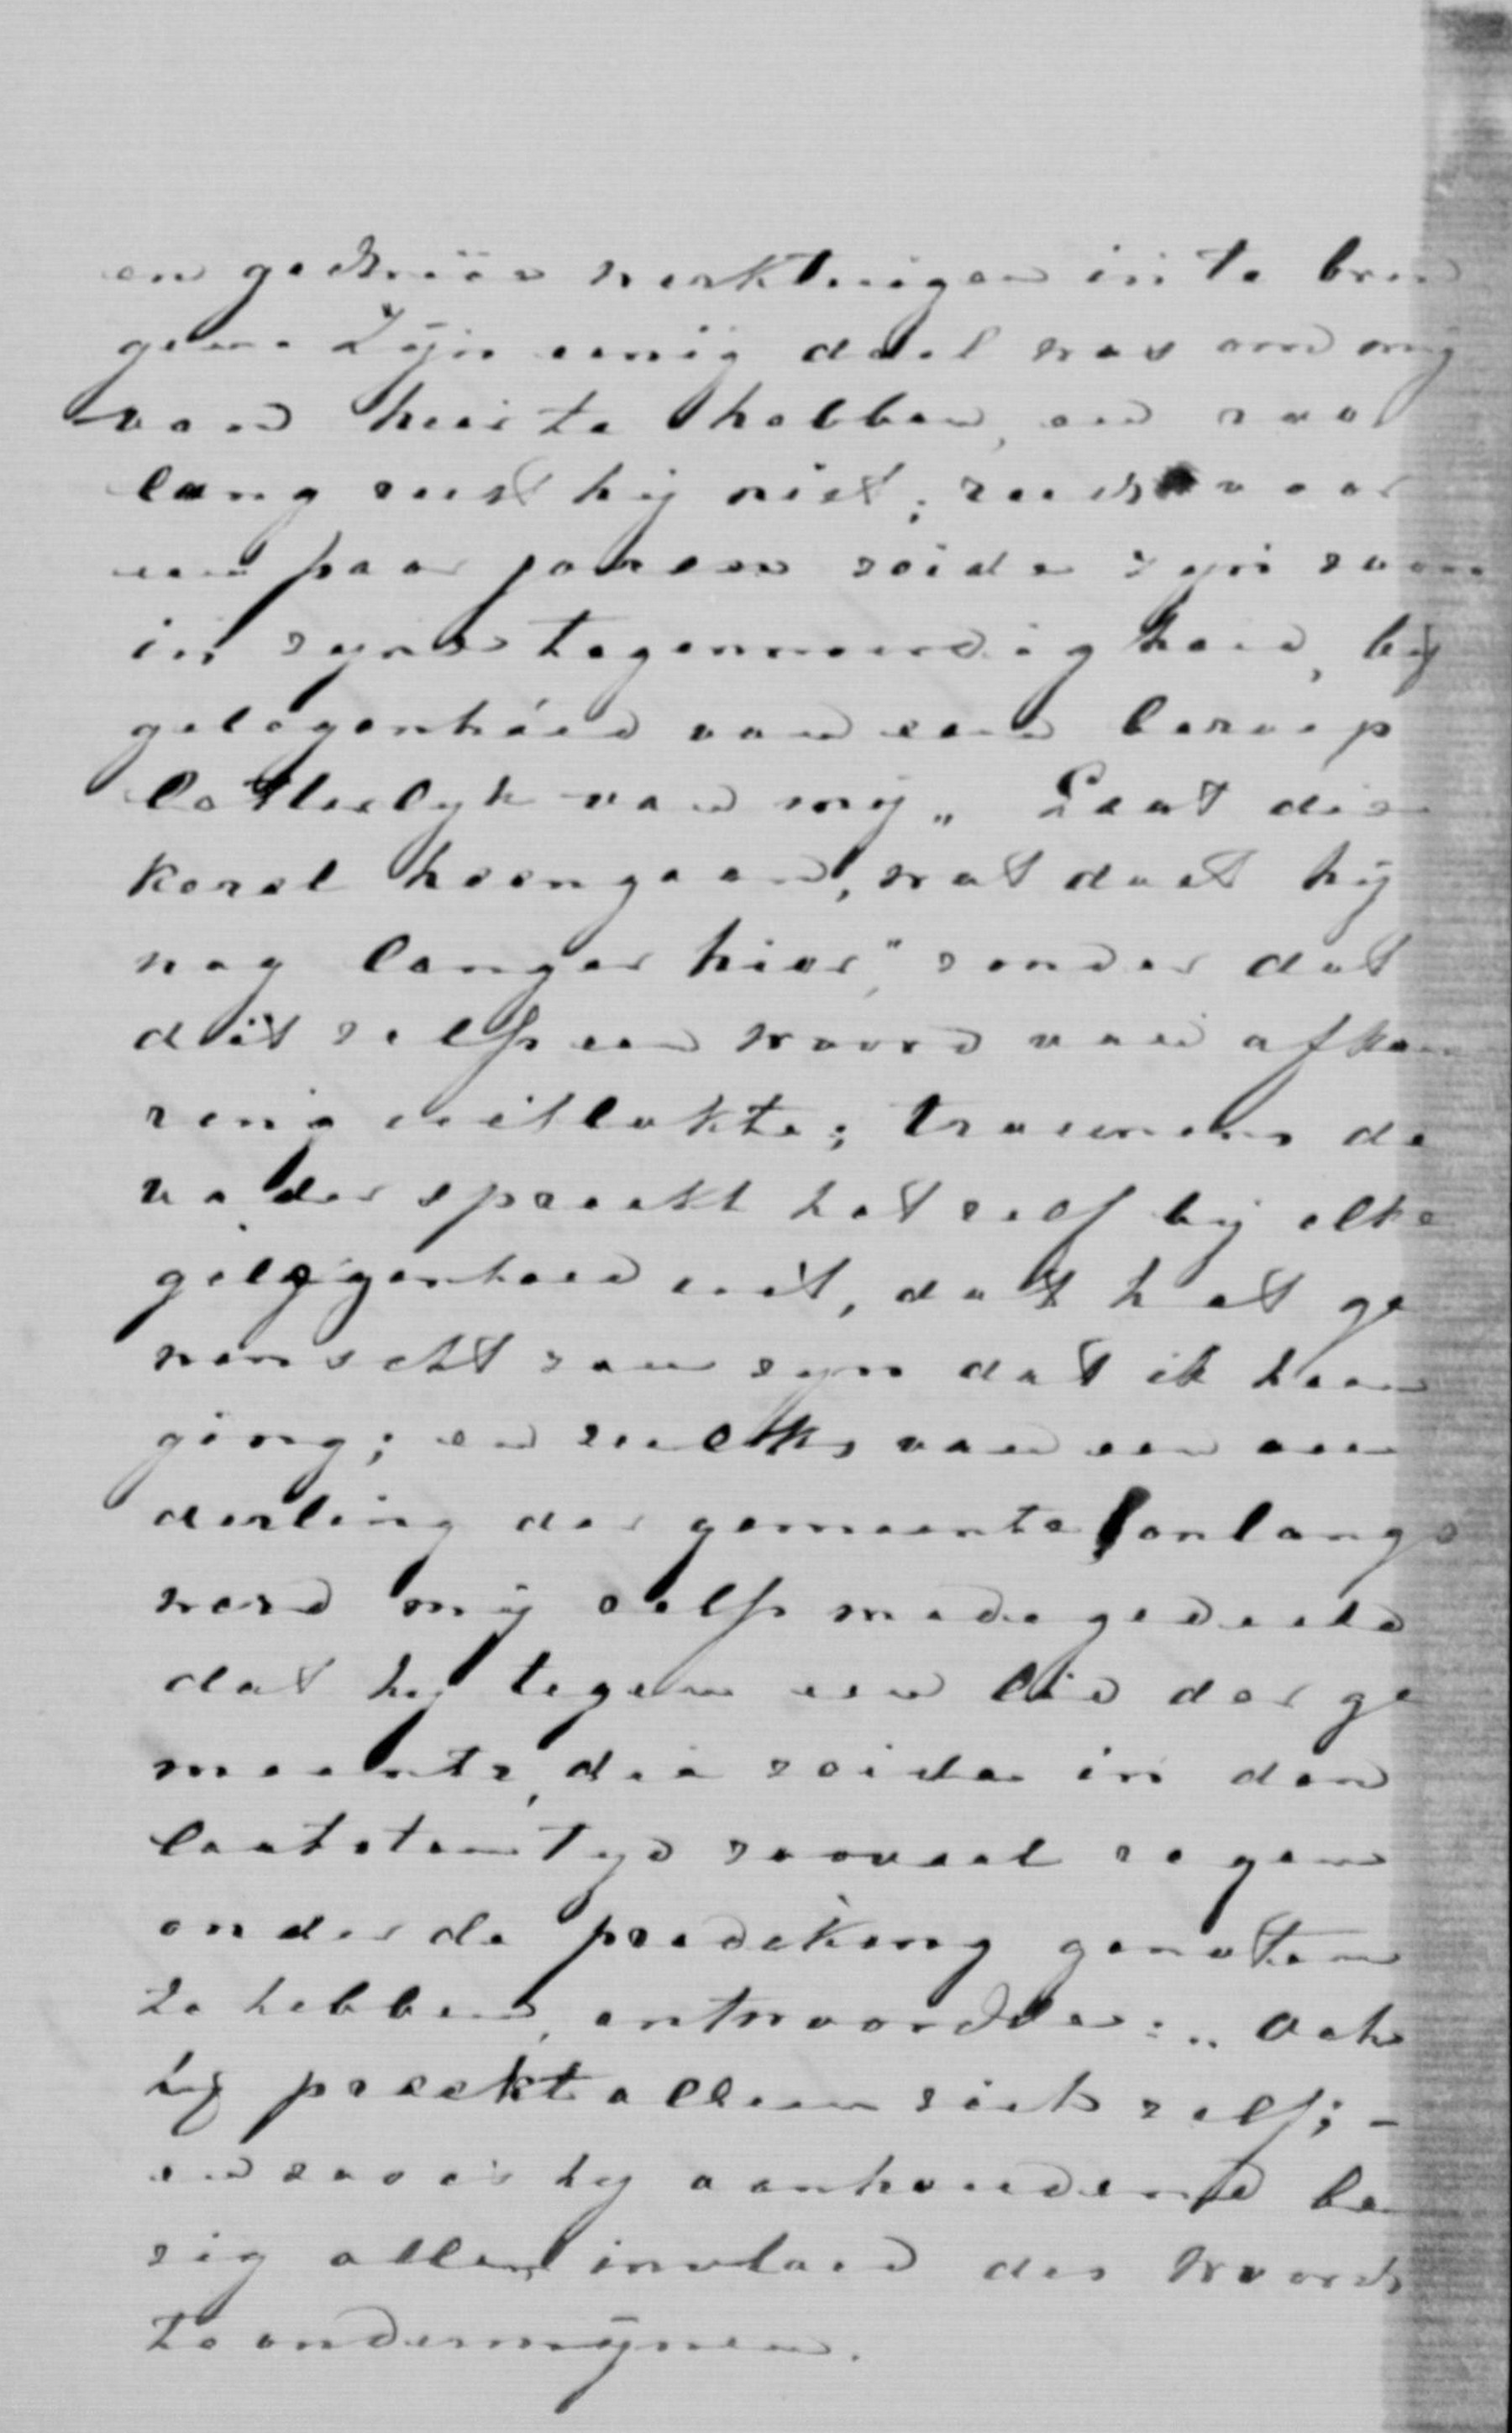 en gedreven werktuigen in te bren
gen. Zijn eenig doel was om mij
van hier te hebben, en
lang rust hij niet; reeds voor
een paar jaren zeide zijn zoon
in zijne tegenwoordigheid, bij
gelegenheid van een beroep
letterlyk van mij „ Laat die
kerel heengaan, wat doet hij
nog langer hier", zonder dat
dit zelfs een woord van afkeu
ring uitlokte; trouwens de
vader spreekt het zelf bij elke
gelegenheid uit, dat het ge
wenscht zou zyn dat ik heen
ging; en zulks van een ou
derling der gemeente! onlangs
werd mij zelfs medegedeeld
dat hij tegen een lid der ge
meente, die zeide in den
laatsten tyd zooveel zegen
onder de prediking genoten
te hebben, antwoordde: „ Och
hij preekt alleen zich zelf; -
en zoo is hij aanhoudend be
zig allen invloed des Woords
te ondermijnen.